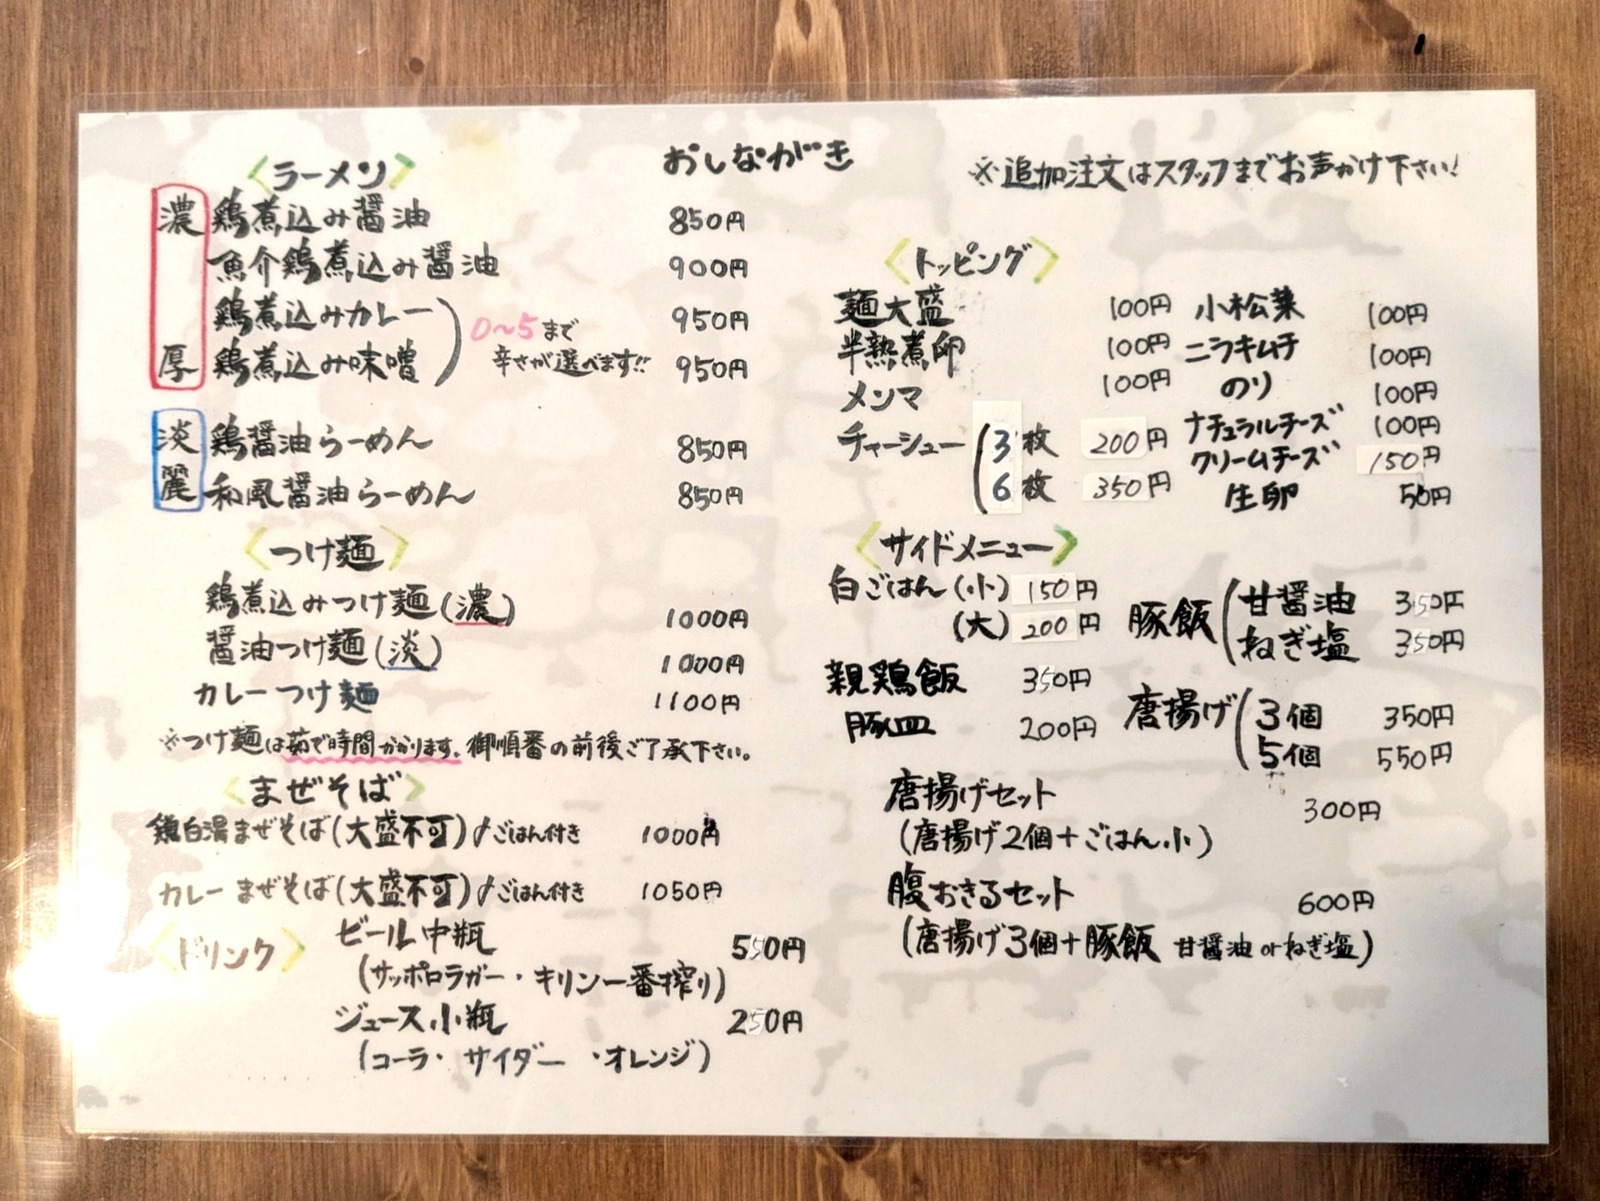 おしながき
※追加注文はスタッフまでお声かけ下さい!
〈ラーメン〉
濃厚
鶏煮込み醤油 850円
魚介鶏煮込み醤油 900円
鶏煮込みカレー 950円
鶏煮込み味噌 950円
0〜5まで
辛さが選べます!!
淡麗
鶏醤油らーめん 850円
和風醤油らーめん 850円
〈つけ麺〉
鶏煮込みつけ麺(濃) 1000円
醤油つけ麺(淡) 1000円
カレーつけ麺 1100円
※つけ麺は茹で時間かかります。御順番の前後ご了承下さい。
〈まぜそば〉
鶏白湯まぜそば(大盛不可)〆ごはん付き 1000円
カレーまぜそば(大盛不可)〆ごはん付き 1050円
〈ドリンク〉
ビール中瓶 550円
(サッポロラガー・キリン一番搾り)
ジュース小瓶 250円
(コーラ・サイダー・オレンジ)
〈トッピング〉
麺大盛 100円
半熟煮卵 100円
メンマ 100円
チャーシュー(3枚 200円
6枚 350円
小松菜 100円
ニラキムチ 100円
のり 100円
ナチュラルチーズ 100円
クリームチーズ 150円
生卵 50円
〈サイドメニュー〉
白ごはん(小) 150円
(大) 200円
親鶏飯 350円
豚皿 200円
豚飯(甘醤油 350円
ねぎ塩 350円
唐揚げ(3個 350円
5個 550円
唐揚げセット 300円
(唐揚げ2個+ごはん小)
腹おきるセット 600円
(唐揚げ3個+豚飯 甘醤油 or ねぎ塩)